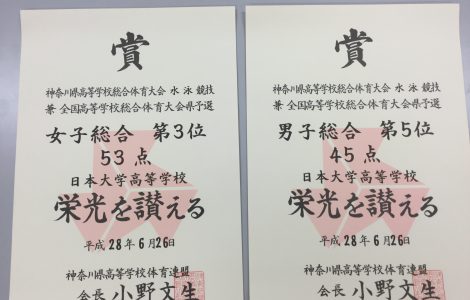 賞
神奈川県高等学校総合体育大会 水泳競技
兼 全国高等学校総合体育大会県予選
女子総合 第3位
53点
日本大学高等学校
栄光を讃える
平成28年6月26日
神奈川県高等学校体育連盟
会長 小野文生
賞
神奈川県高等学校総合体育大会 水泳競技
兼 全国高等学校総合体育大会県予選
男子総合 第5位
45点
日本大学高等学校
栄光を讃える
平成28年6月26日
神奈川県高等学校体育連盟
会長 小野文生